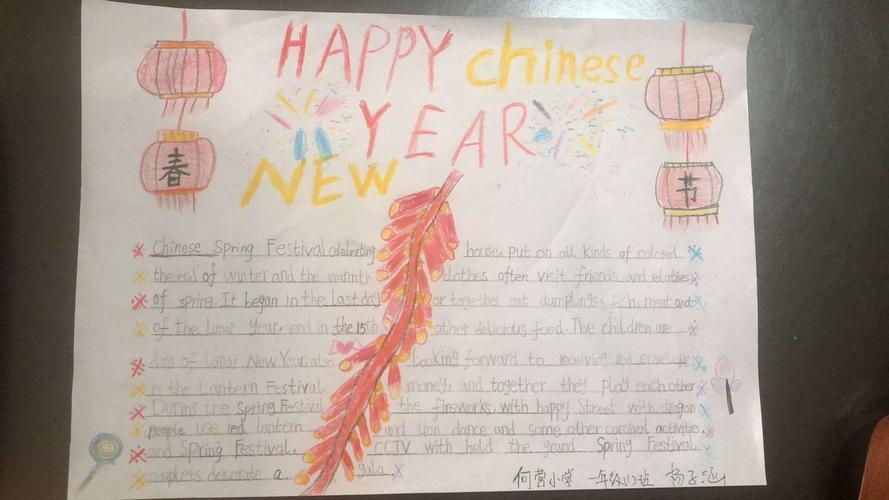 HAPPY chinese
YEAR
NEW
春
节
Chinese Spring Festival celebrating
the end of winter and the warmth
of spring. It began in the last day
of the lunar Year, end in the 15th
day of lunar New Year, also
in the Lantern Festival
During the Spring Festival
people use red lantern
and Spring Festival
couplets decorate a
house, put on all kinds of colored
clothes often visit friends and relatives
or together eat dumplings, fish, meat and
other delicious food. The children are
looking forward to receiving red envelope
money, and together they play each other
the fireworks, with happy. Street with dragon
and lion dance and some other carnival activities,
CCTV with held the grand Spring Festival
gala.
何营小学 一年级 班 杨子涵